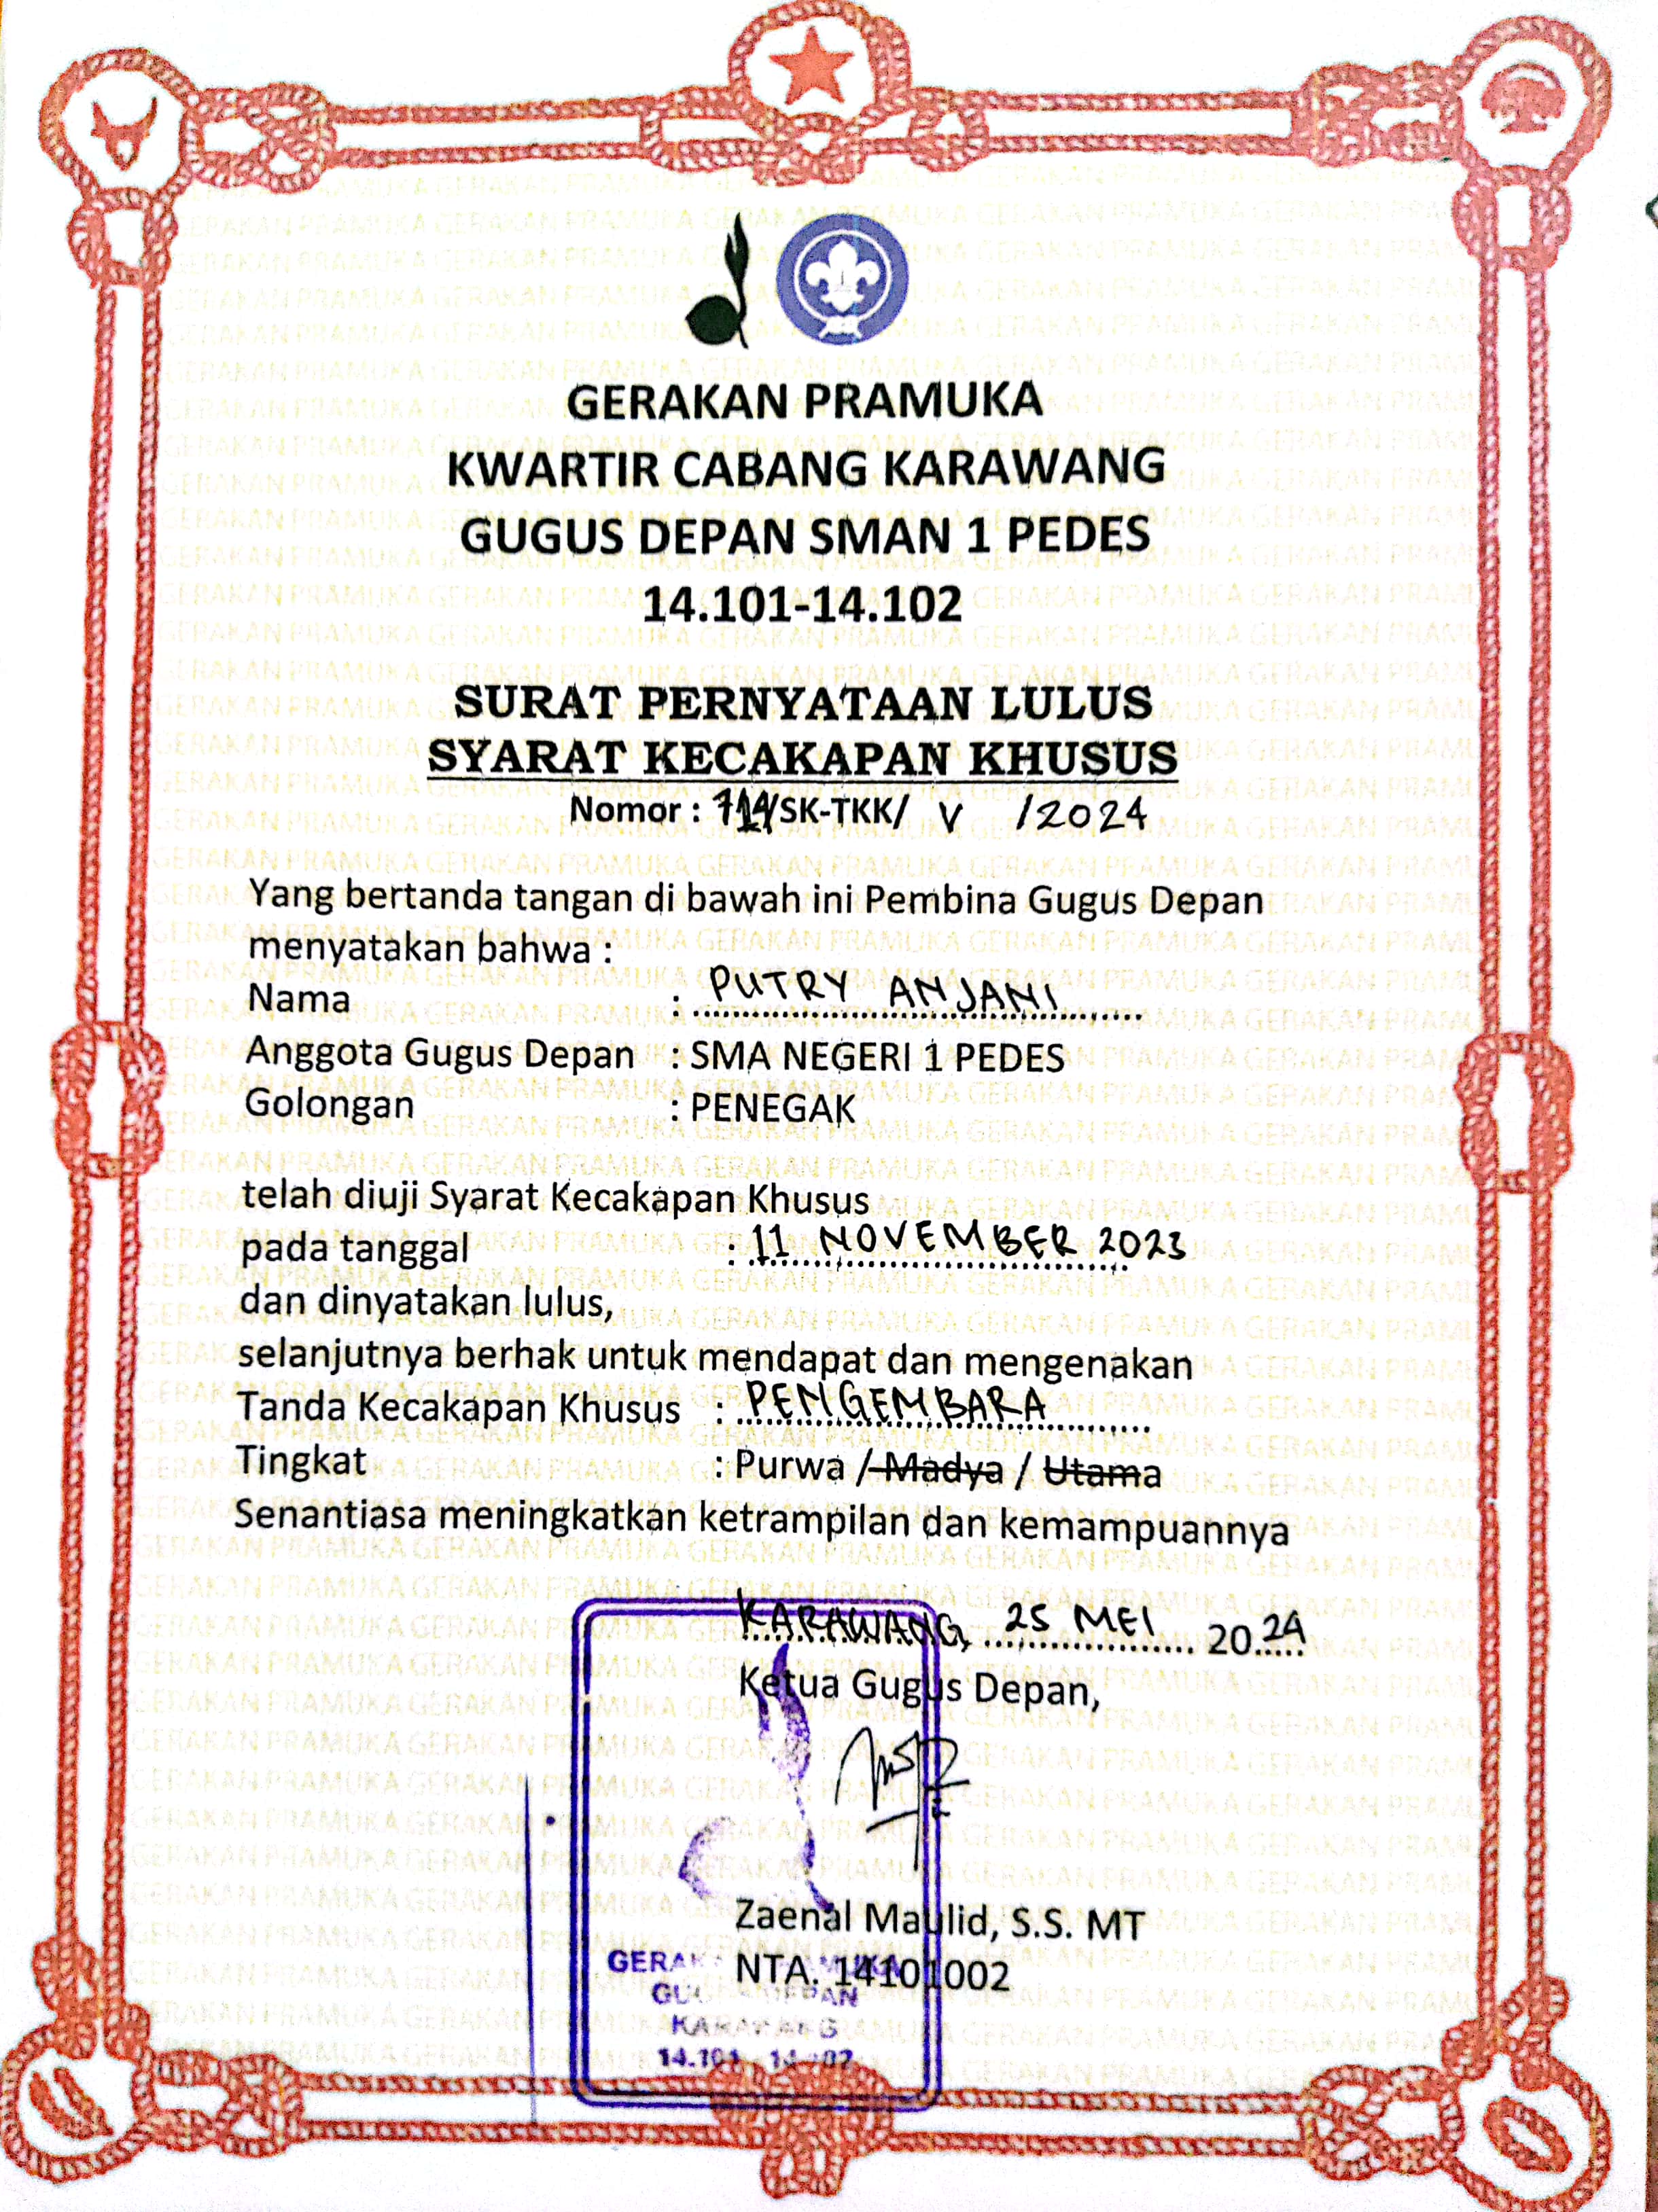 GERAKAN PRAMUKA
KWARTIR CABANG KARAWANG
GUGUS DEPAN SMAN 1 PEDES
14.101-14.102
SURAT PERNYATAAN LULUS
SYARAT KECAKAPAN KHUSUS
Nomor : 714/SK-TKK/ V /2024
Yang bertanda tangan di bawah ini Pembina Gugus Depan
menyatakan bahwa :
Nama : PUTRY ANJANI
Anggota Gugus Depan : SMA NEGERI 1 PEDES
Golongan : PENEGAK
telah diuji Syarat Kecakapan Khusus
pada tanggal : 11 NOVEMBER 2023
dan dinyatakan lulus,
selanjutnya berhak untuk mendapat dan mengenakan
Tanda Kecakapan Khusus : PENGEMBARA
Tingkat : Purwa / Madya / Utama
Senantiasa meningkatkan ketrampilan dan kemampuannya
KARAWANG, 25 MEI 2024
Ketua Gugus Depan,
Zaenal Maulid, S.S. MT
NTA. 14101002
GERAKAN PRAMUKA
GUGUS DEPAN
KARAWANG
14.101 - 14.102